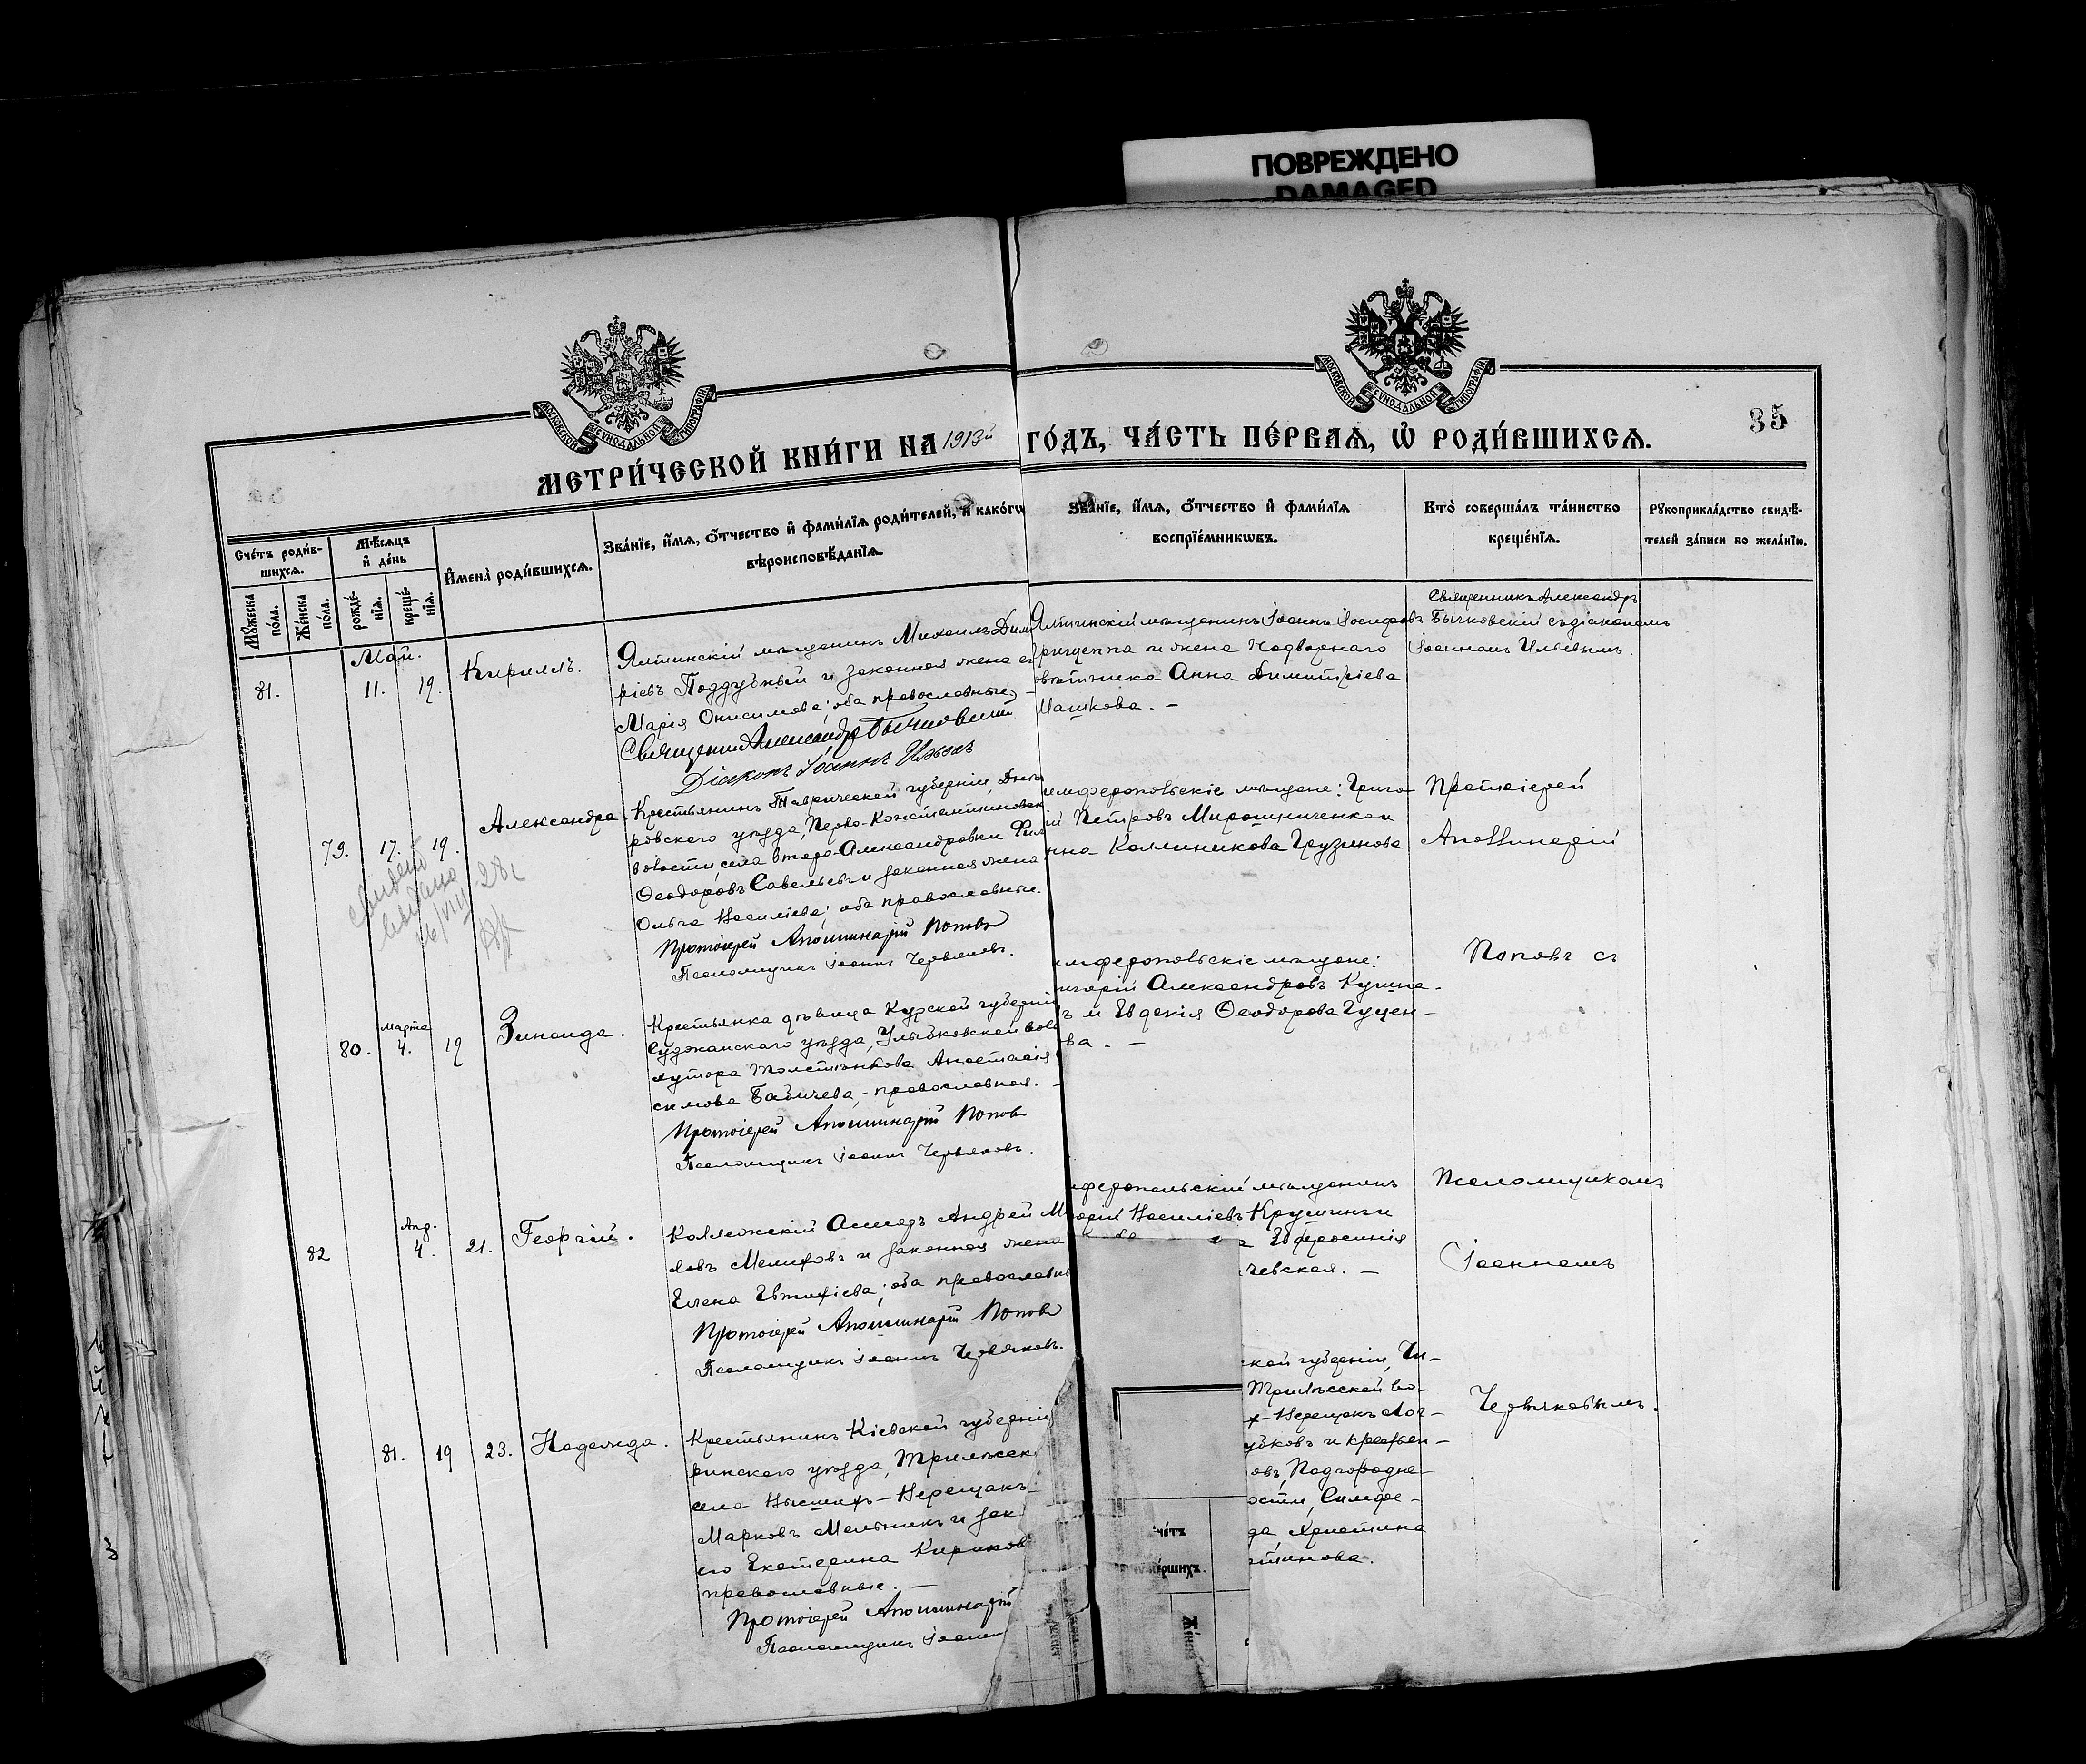 ПОВРЕЖДЕНО
DAMAGED
МОСКОВСКОЙ СѴНОДАЛЬНОЙ ТИПОГРАФІИ
МОСКОВСКОЙ СѴНОДАЛЬНОЙ ТИПОГРАФІИ
35
МЕТРИ́ЧЕСКОЙ КНИ́ГИ НА 1913й ГО́ДЪ, ЧА́СТЬ ПЕ́РВАѦ, Ѡ҆ РОДИ́ВШИХСѦ.
Сче́тъ роди́в-
шихсѧ.
Мꙋ́жеска по́ла.
Же́нска по́ла.
Мѣ́сѧцъ и҆ де́нь
рожде́-
нїѧ.
креще́-
нїѧ.
И҆мена̀ роди́вшихсѧ.
Зва́нїе, и҆́мѧ, ѻ҆́тчество и҆ фами́лїѧ роди́телей, и҆ како́гѡ
вѣроисповѣ́данїѧ.
Зва́нїе, и҆́мѧ, ѻ҆́тчество и҆ фами́лїѧ
воспрїе́мникѡвъ.
Кто̀ соверша́лъ та́инство
креще́нїѧ.
Рꙋкоприкла́дство свидѣ́-
телей за́писи по жела́нїю.
Май.
81. 11. 19.
Кириллъ.
Ялтинскій мѣщанинъ Михаилъ Дими
ріевъ Поддубный и законная жена ег
Марія Онисимова; оба православные, –
Священникъ Александръ Бычковскій
Діаконъ Іоаннъ Ильинъ
Ялтинскій мѣщанинъ Іоаннъ Іосифовъ
и жена Надворнаго
овѣтника Анна Димитріева
Машкова. –
Священникъ Александръ
Бычковскій съ діакономъ
Іоанномъ Ильинымъ.
79. 17. 19.
Александра.
Крестьянинъ Таврической губерніи, Днѣп
ровскаго уѣзда, Перво-Константиновск
волости, села Второ-Александровки Фил
Ѳеодоровъ Савельевъ и законная жена
Ольга Василіева; оба православные.
Протоіерей Аполлинарій Поповъ
Псаломщикъ Іоаннъ Червяковъ.
имферопольскіе мѣщане: Григо-
ій Петровъ Мирошниченко и
нна Калиникова Грузинова
Протоіерей
Аполлинарій
80. Марта 4. 19
Зинаида.
Крестьянка дѣвица Курской губерніи
Суджанскаго уѣзда, Улыбковской вол
хутора Толстянкова Анастасія
симова Бабичева, – православная. –
Протоіерей Аполлинарій Поповъ
Псаломщикъ Іоаннъ Червяковъ.
имферопольскіе мѣщане:
игорій Александровъ Кушна-
ъ и Евдокія Ѳеодорова Гуцен-
ва. –
Поповъ съ
82 Апр. 4. 21.
Георгій.
Коллежскій Ассесоръ Андрей Ми
ловъ Мелиховъ и законная жена
Елена Евтихіева; оба православны
Протоіерей Аполлинарій Поповъ
Псаломщикъ Іоаннъ Червяковъ.
мферопольскій мѣщанинъ
орій Васильевъ Крушинъ и
а Евфросинія
чевская. –
Псаломщикомъ
Іоанномъ
81. 19 23.
Надежда.
Крестьянинъ Кіевской губерніи
ринскаго уѣзда, Трилѣсск
села Нысшихъ-Верещакъ
Марковъ Мельникъ и зак
его Екатерина Кириков
православные. –
Протоіерей Аполлинарій
Псаломщикъ Іоанн
ской губерніи, Чи-
Трилѣсской во-
х-Верещакъ Лог-
убковъ и крестьян-
овъ, Подгородне-
ости, Симфе-
да, Христина
ртинова.
Червяковымъ.
че́тъ
ме́ршихъ.